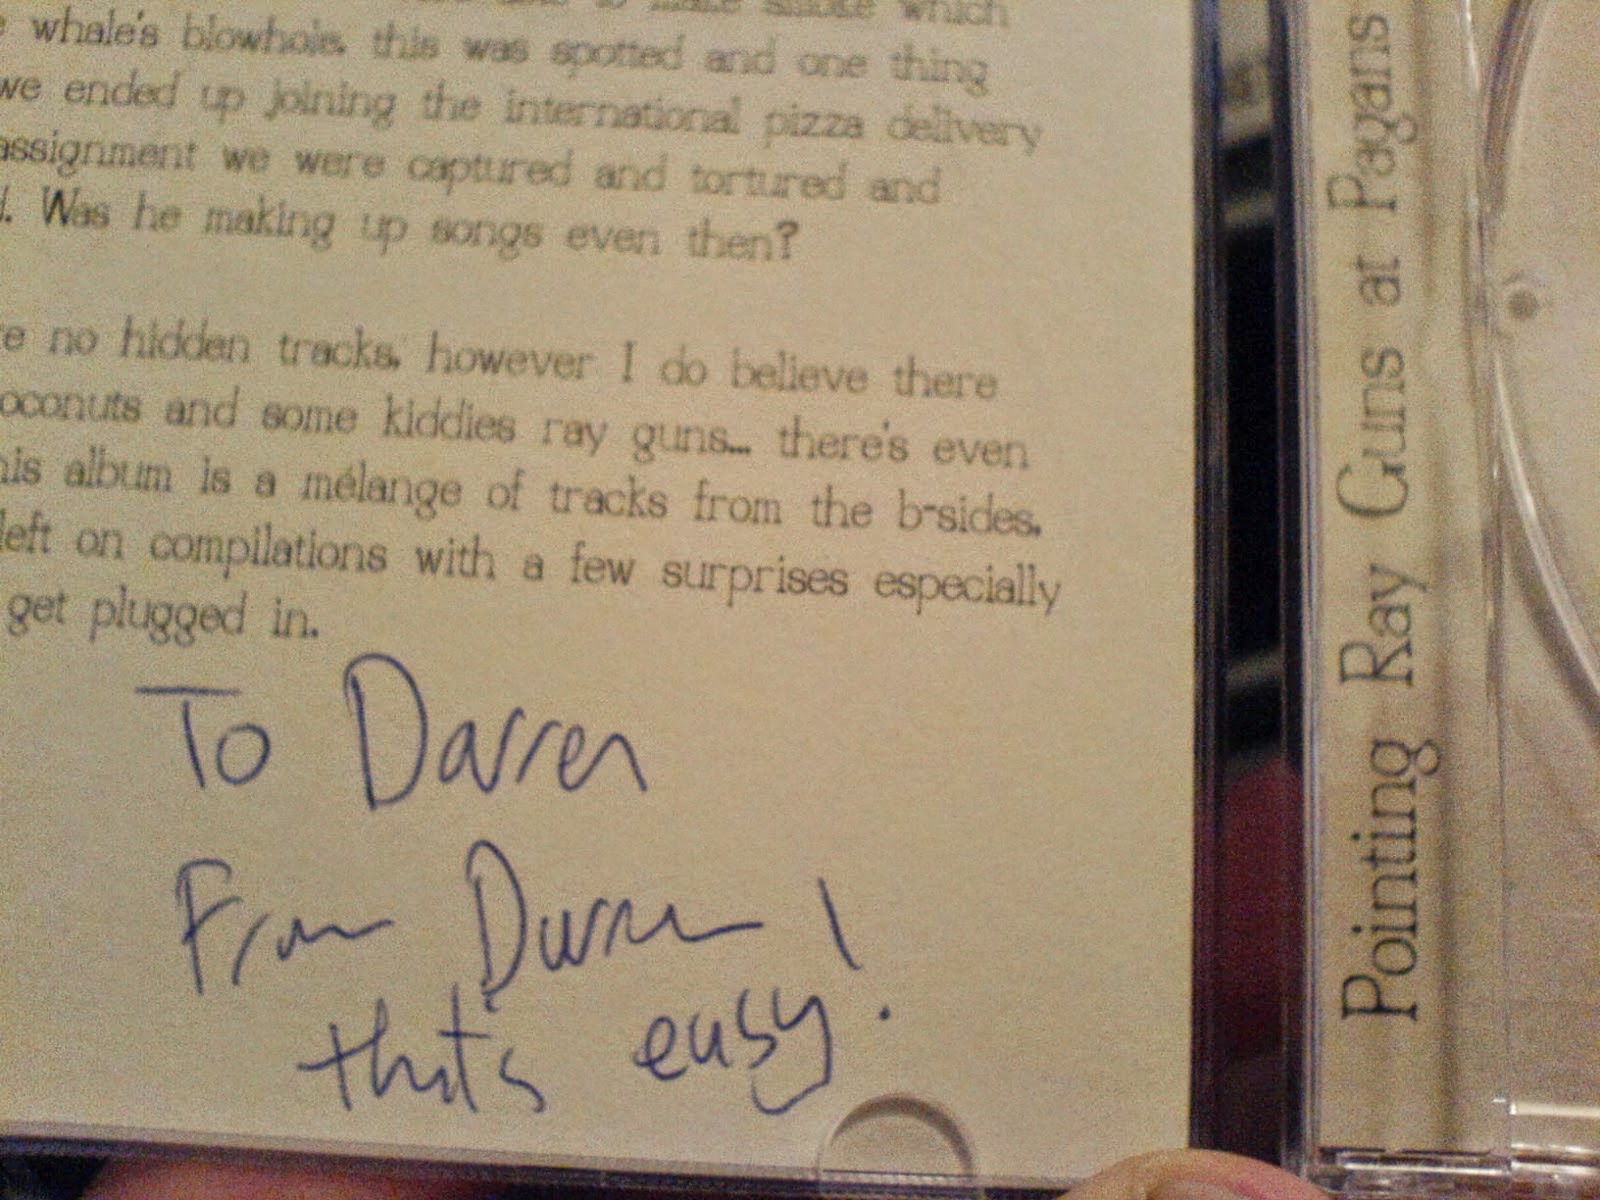 which
whale's blowhole. this was spotted and one thing
we ended up joining the international pizza delivery
assignment we were captured and tortured and
. Was he making up songs even then?
no hidden tracks. however I do believe there
oconuts and some kiddies ray guns... there's even
his album is a mélange of tracks from the b-sides.
left on compilations with a few surprises especially
get plugged in.
To Darren
From Darren
that's easy!
Pointing Ray Guns at Pagans